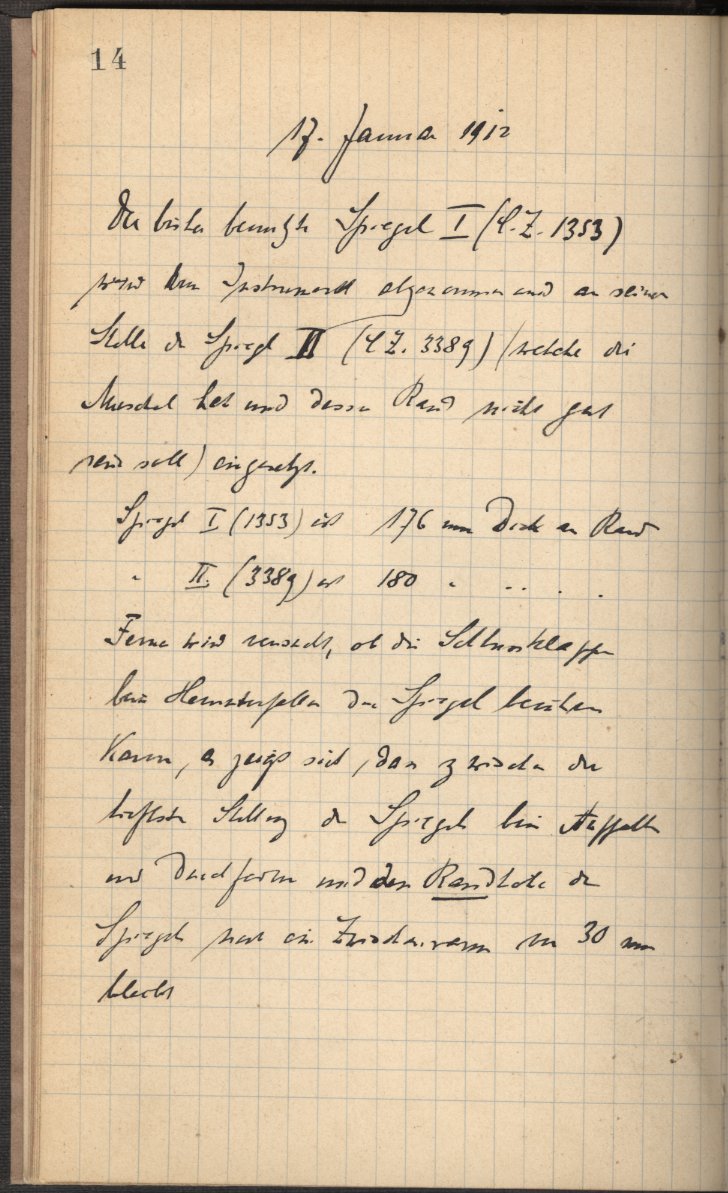 14
17. Januar 1912
Der bisher benutzte Spiegel I (C.Z. 1353)
wird dem Instrument abgenommen und an seiner
Stelle der Spiegel II (C.Z. 3389) (welcher die
Muschel hat und dessen Rand nicht gut
sein soll) eingesetzt.
Spiegel I (1353) ist 176 mm Dick am Rand
" II. (3389) ist 180 " " " " "
Ferner wird versucht, ob die Schlussklappe
beim Herunterfallen den Spiegel berühren
kann, es zeigt sich, dass zwischen der
tiefsten Stellung des Spiegels beim Auffallen
und Durchfedern und dem Randhöhe des
Spiegels noch ein Zwischenraum von 30 mm
bleibt